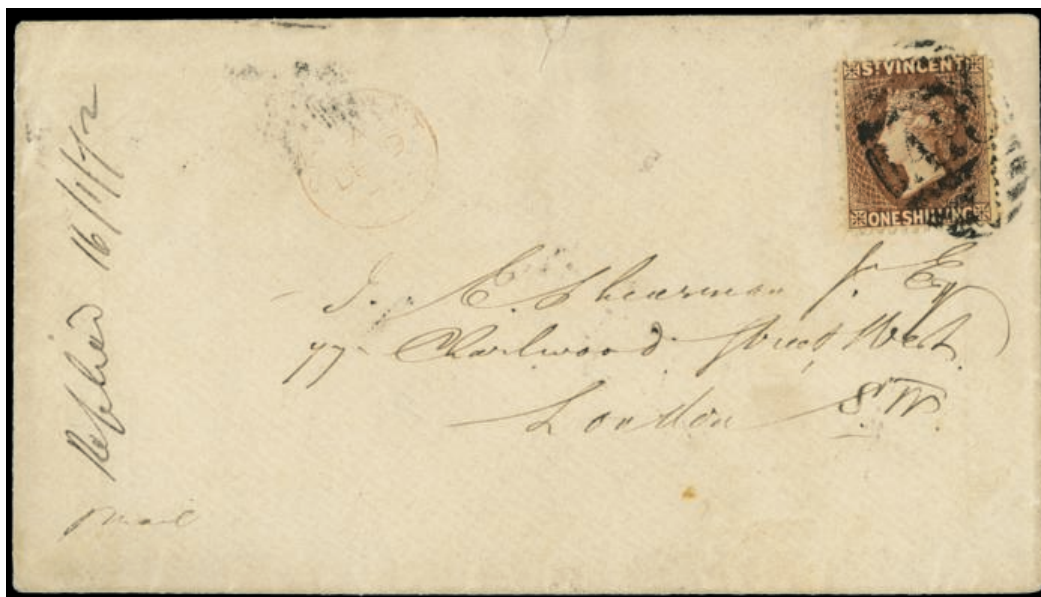 Replied 16/1/72
Mail
ST VINCENT
ONE SHILLING
J. E. Shearman Jr. Esq
77 Charlwood Street West
London S.W.